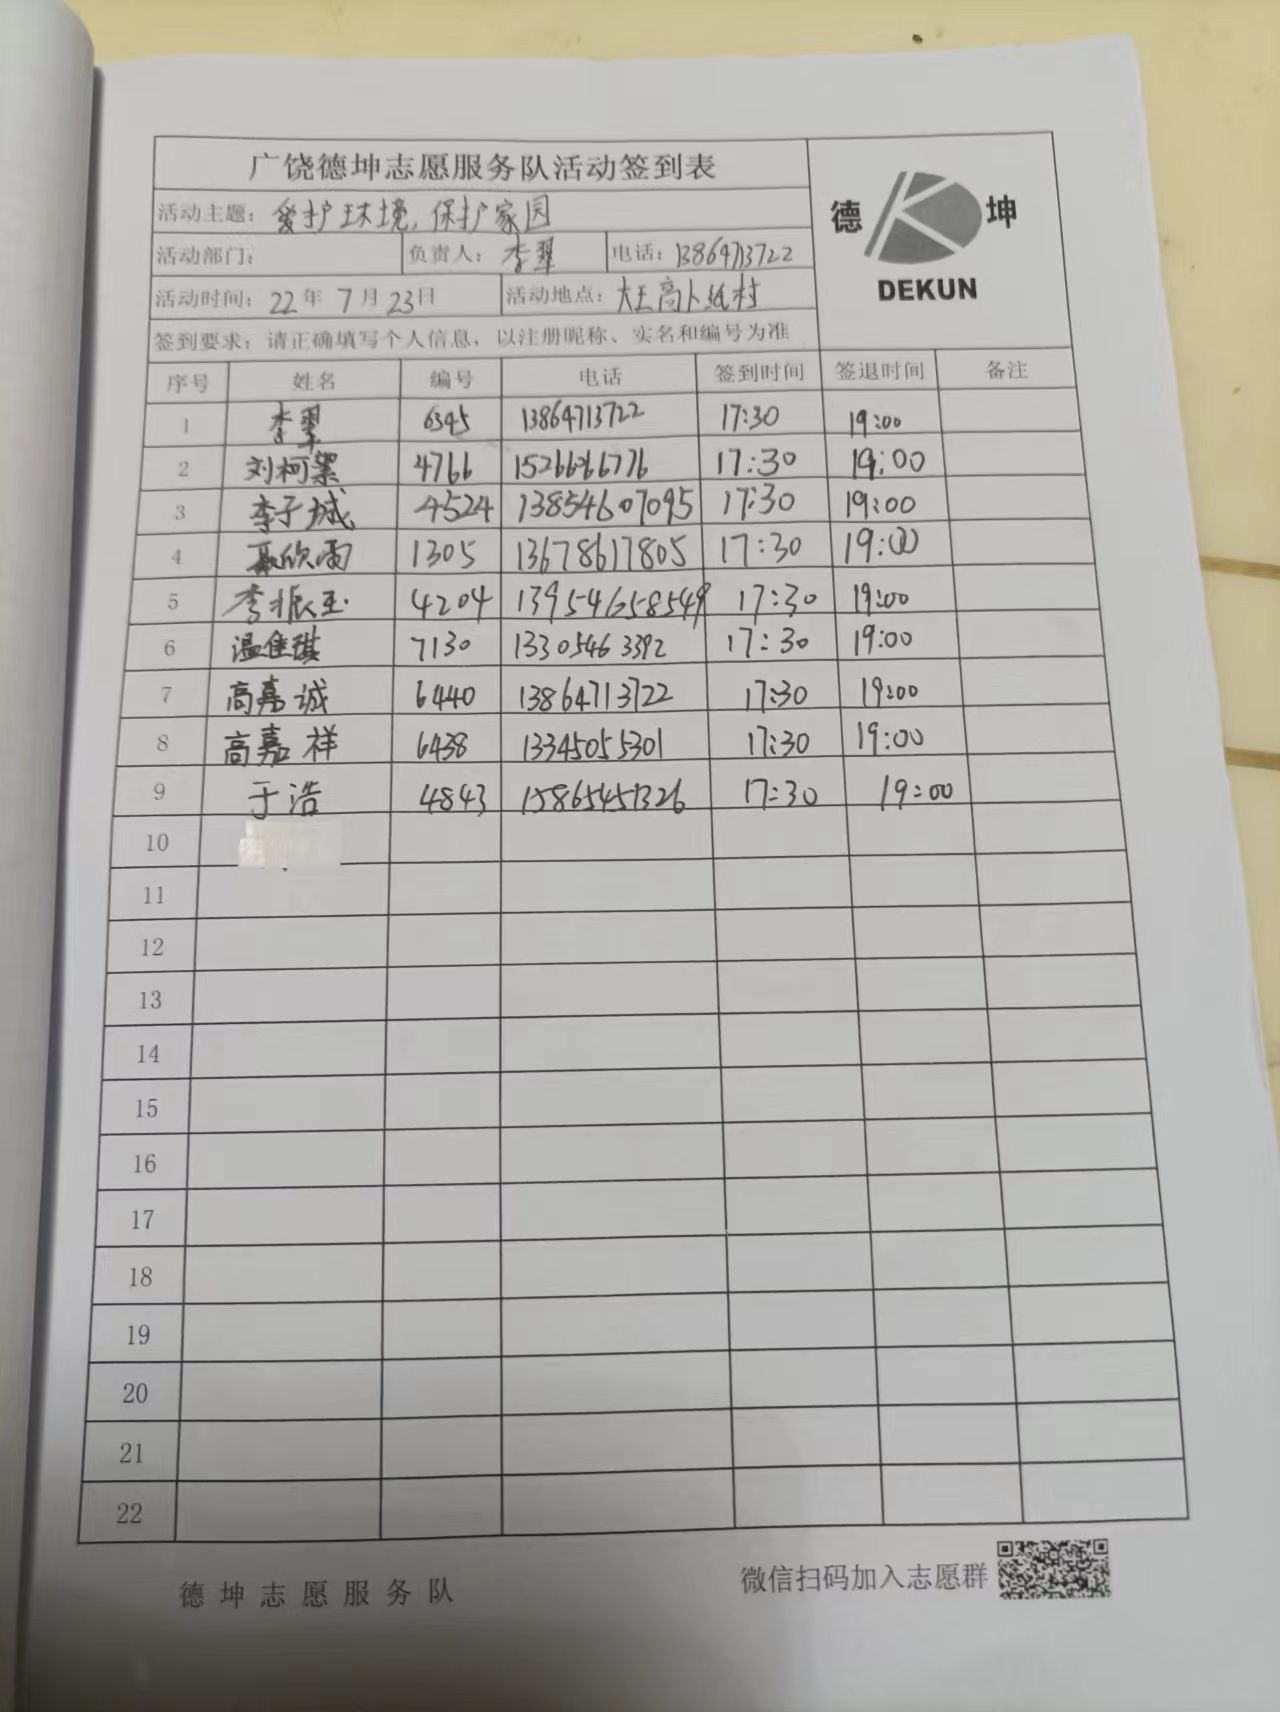 广饶德坤志愿服务队活动签到表
活动主题：爱护环境，保护家园
德 坤
DEKUN
活动部门： 负责人：李翠 电话：13864713722
活动时间：22年7月23日 活动地点：大王高卜纸村
签到要求：请正确填写个人信息，以注册昵称、实名和编号为准
序号 姓名 编号 电话 签到时间 签退时间 备注
1 李翠 6345 13864713722 17:30 19:00
2 刘柯 4766 15266066776 17:30 19:00
3 李子城 4524 13854607095 17:30 19:00
4 聂欣雨 1305 13678617805 17:30 19:00
5 李振玉 4204 13954658549 17:30 19:00
6 温佳琪 7130 13305463392 17:30 19:00
7 高嘉诚 6440 13864713722 17:30 19:00
8 高嘉祥 6438 13345055301 17:30 19:00
9 于浩 4843 15865451326 17:30 19:00
10
11
12
13
14
15
16
17
18
19
20
21
22
德坤志愿服务队 微信扫码加入志愿群